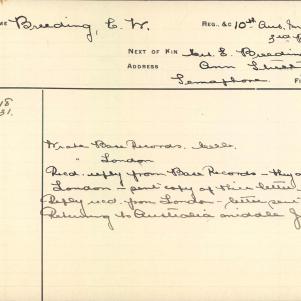 ME Breeding, C. W. REG., &C 10th Aus. In
3rd
NEXT OF KIN E. Breedin
ADDRESS Ann Street
Semaphore. F
18
31.
Wrote Base Records. Melb.
" London
Recd. reply from Base Records - they a
London & sent copy of their letter
Reply recd. from London - letter sent
Returning to Australia middle J